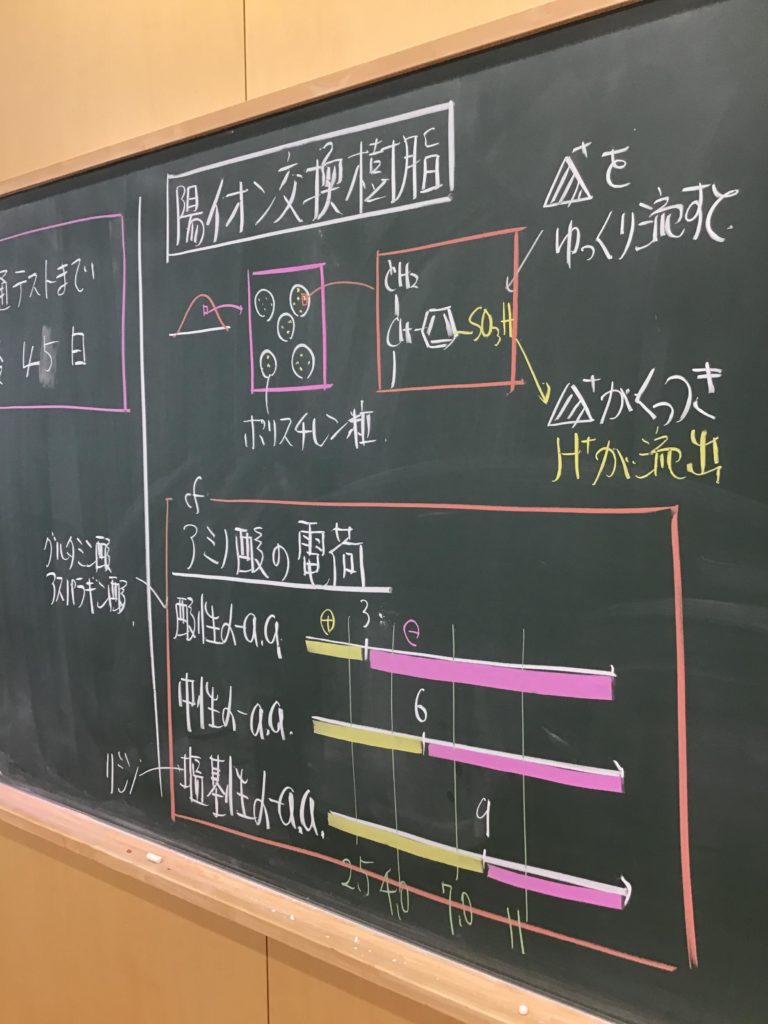 通テストまで
45日
陽イオン交換樹脂
+を
ゆっくり流すと
CH2
CH
SO3H
ポリスチレン粒
+がくっつき
H+が流出
cf
アミノ酸の電荷
グルタミン酸
アスパラギン酸
酸性α-a.a.
+ 3 -
中性α-a.a.
6
リジン
塩基性α-a.a.
9
2.5 4.0 7.0 11